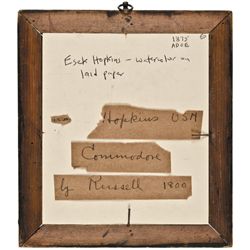 1875
Esek Hopkins – watercolor on
laid paper
Hopkins USN
Commodore
by Russell 1800